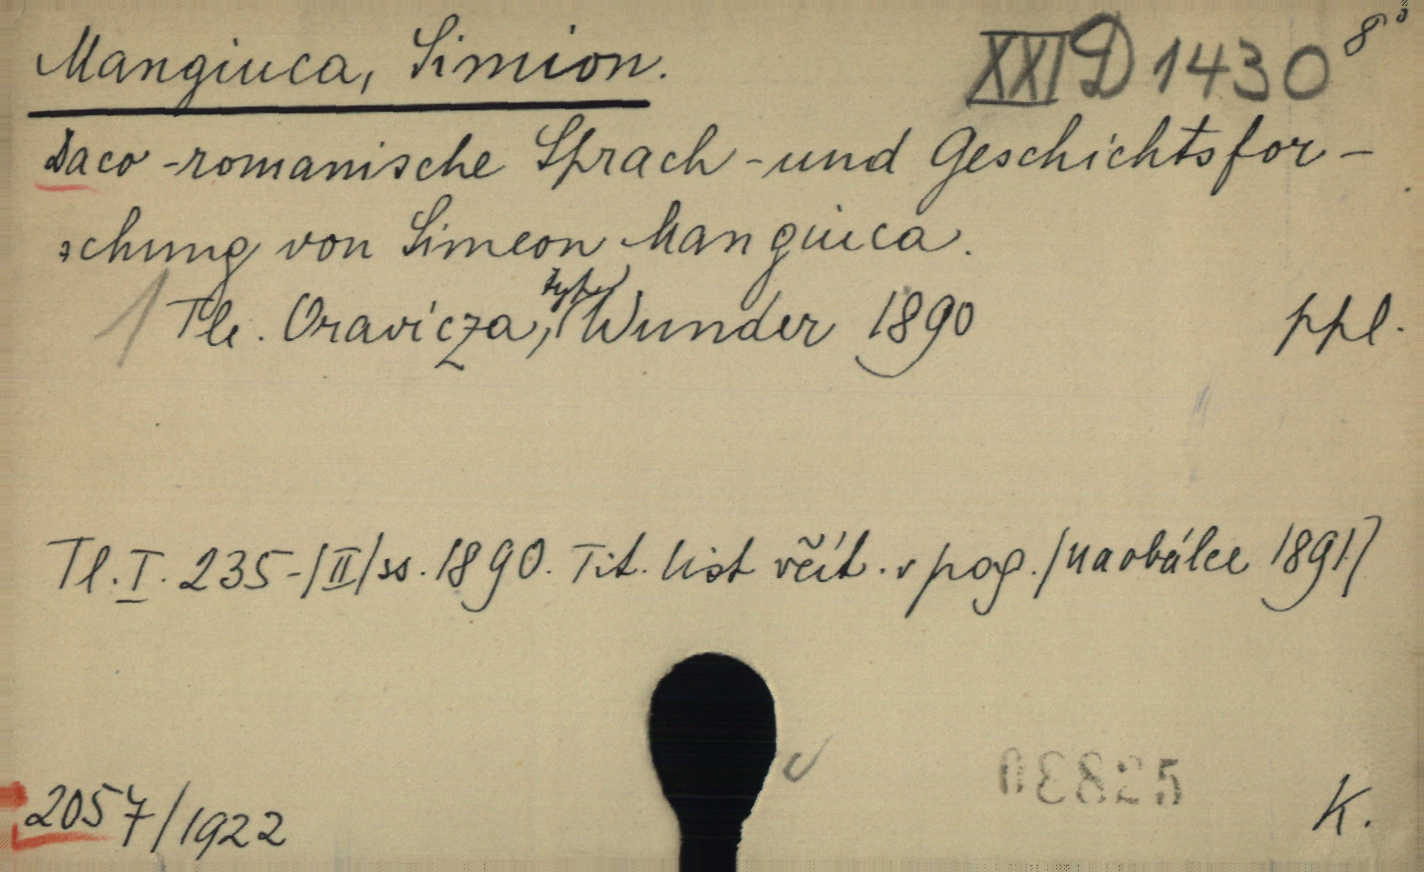 Mangiuca, Simion. XXI D 1430 8°
Daco-romanische Sprach-und Geschichtsfor-
schung von Simeon Mangiuca.
1 Tle. Oravicza, typ. Wunder 1890 ppl.
Tl. I. 235-/II/ss. 1890. Tit. list včít. v pag. /na obálce 1891/
2057/1922 K.